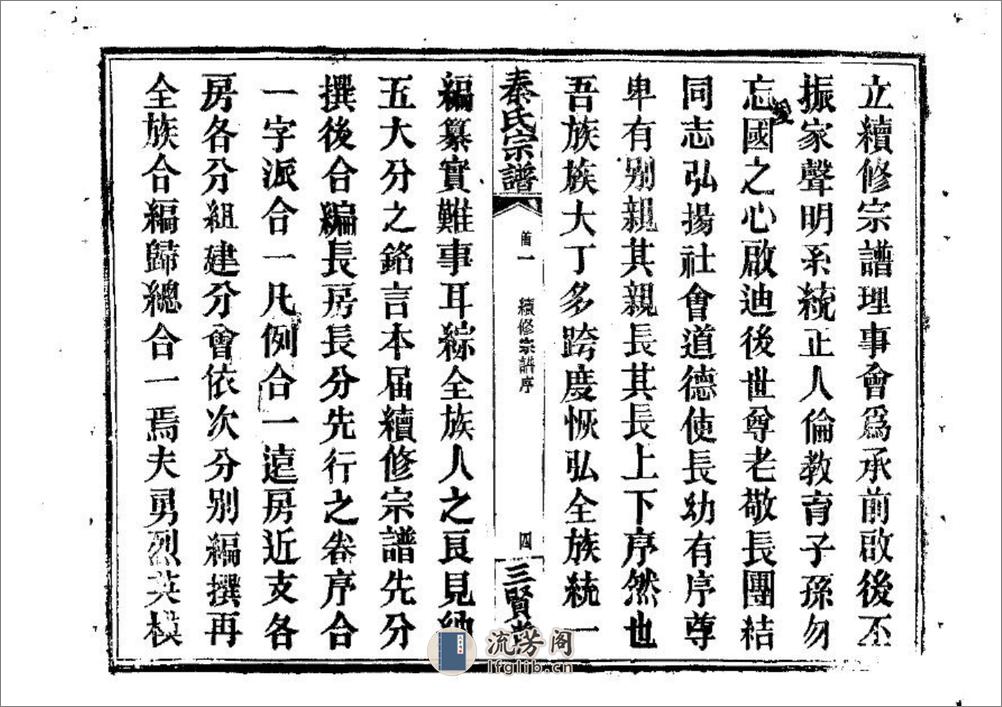 立續修宗譜理事會爲承前啟後丕
振家聲明系統正人倫教育子孫勿
忘國之心啟迪後世尊老敬長團結
同志弘揚社會道德使長幼有序尊
卑有别親其親長其長上下序然也
吾族族大丁多跨度恢弘全族統一
秦氏宗譜
首一
續修宗譜序
四
三賢堂
編纂實難事耳綜全族人之良見納
五大分之銘言本届續修宗譜先分
撰後合編長房長分先行之卷序合
一字派合一凡例合一遠房近支各
房各分組建分會依次分别編撰再
全族合編歸總合一焉夫男烈英模
流芳阁
lfglib.cn